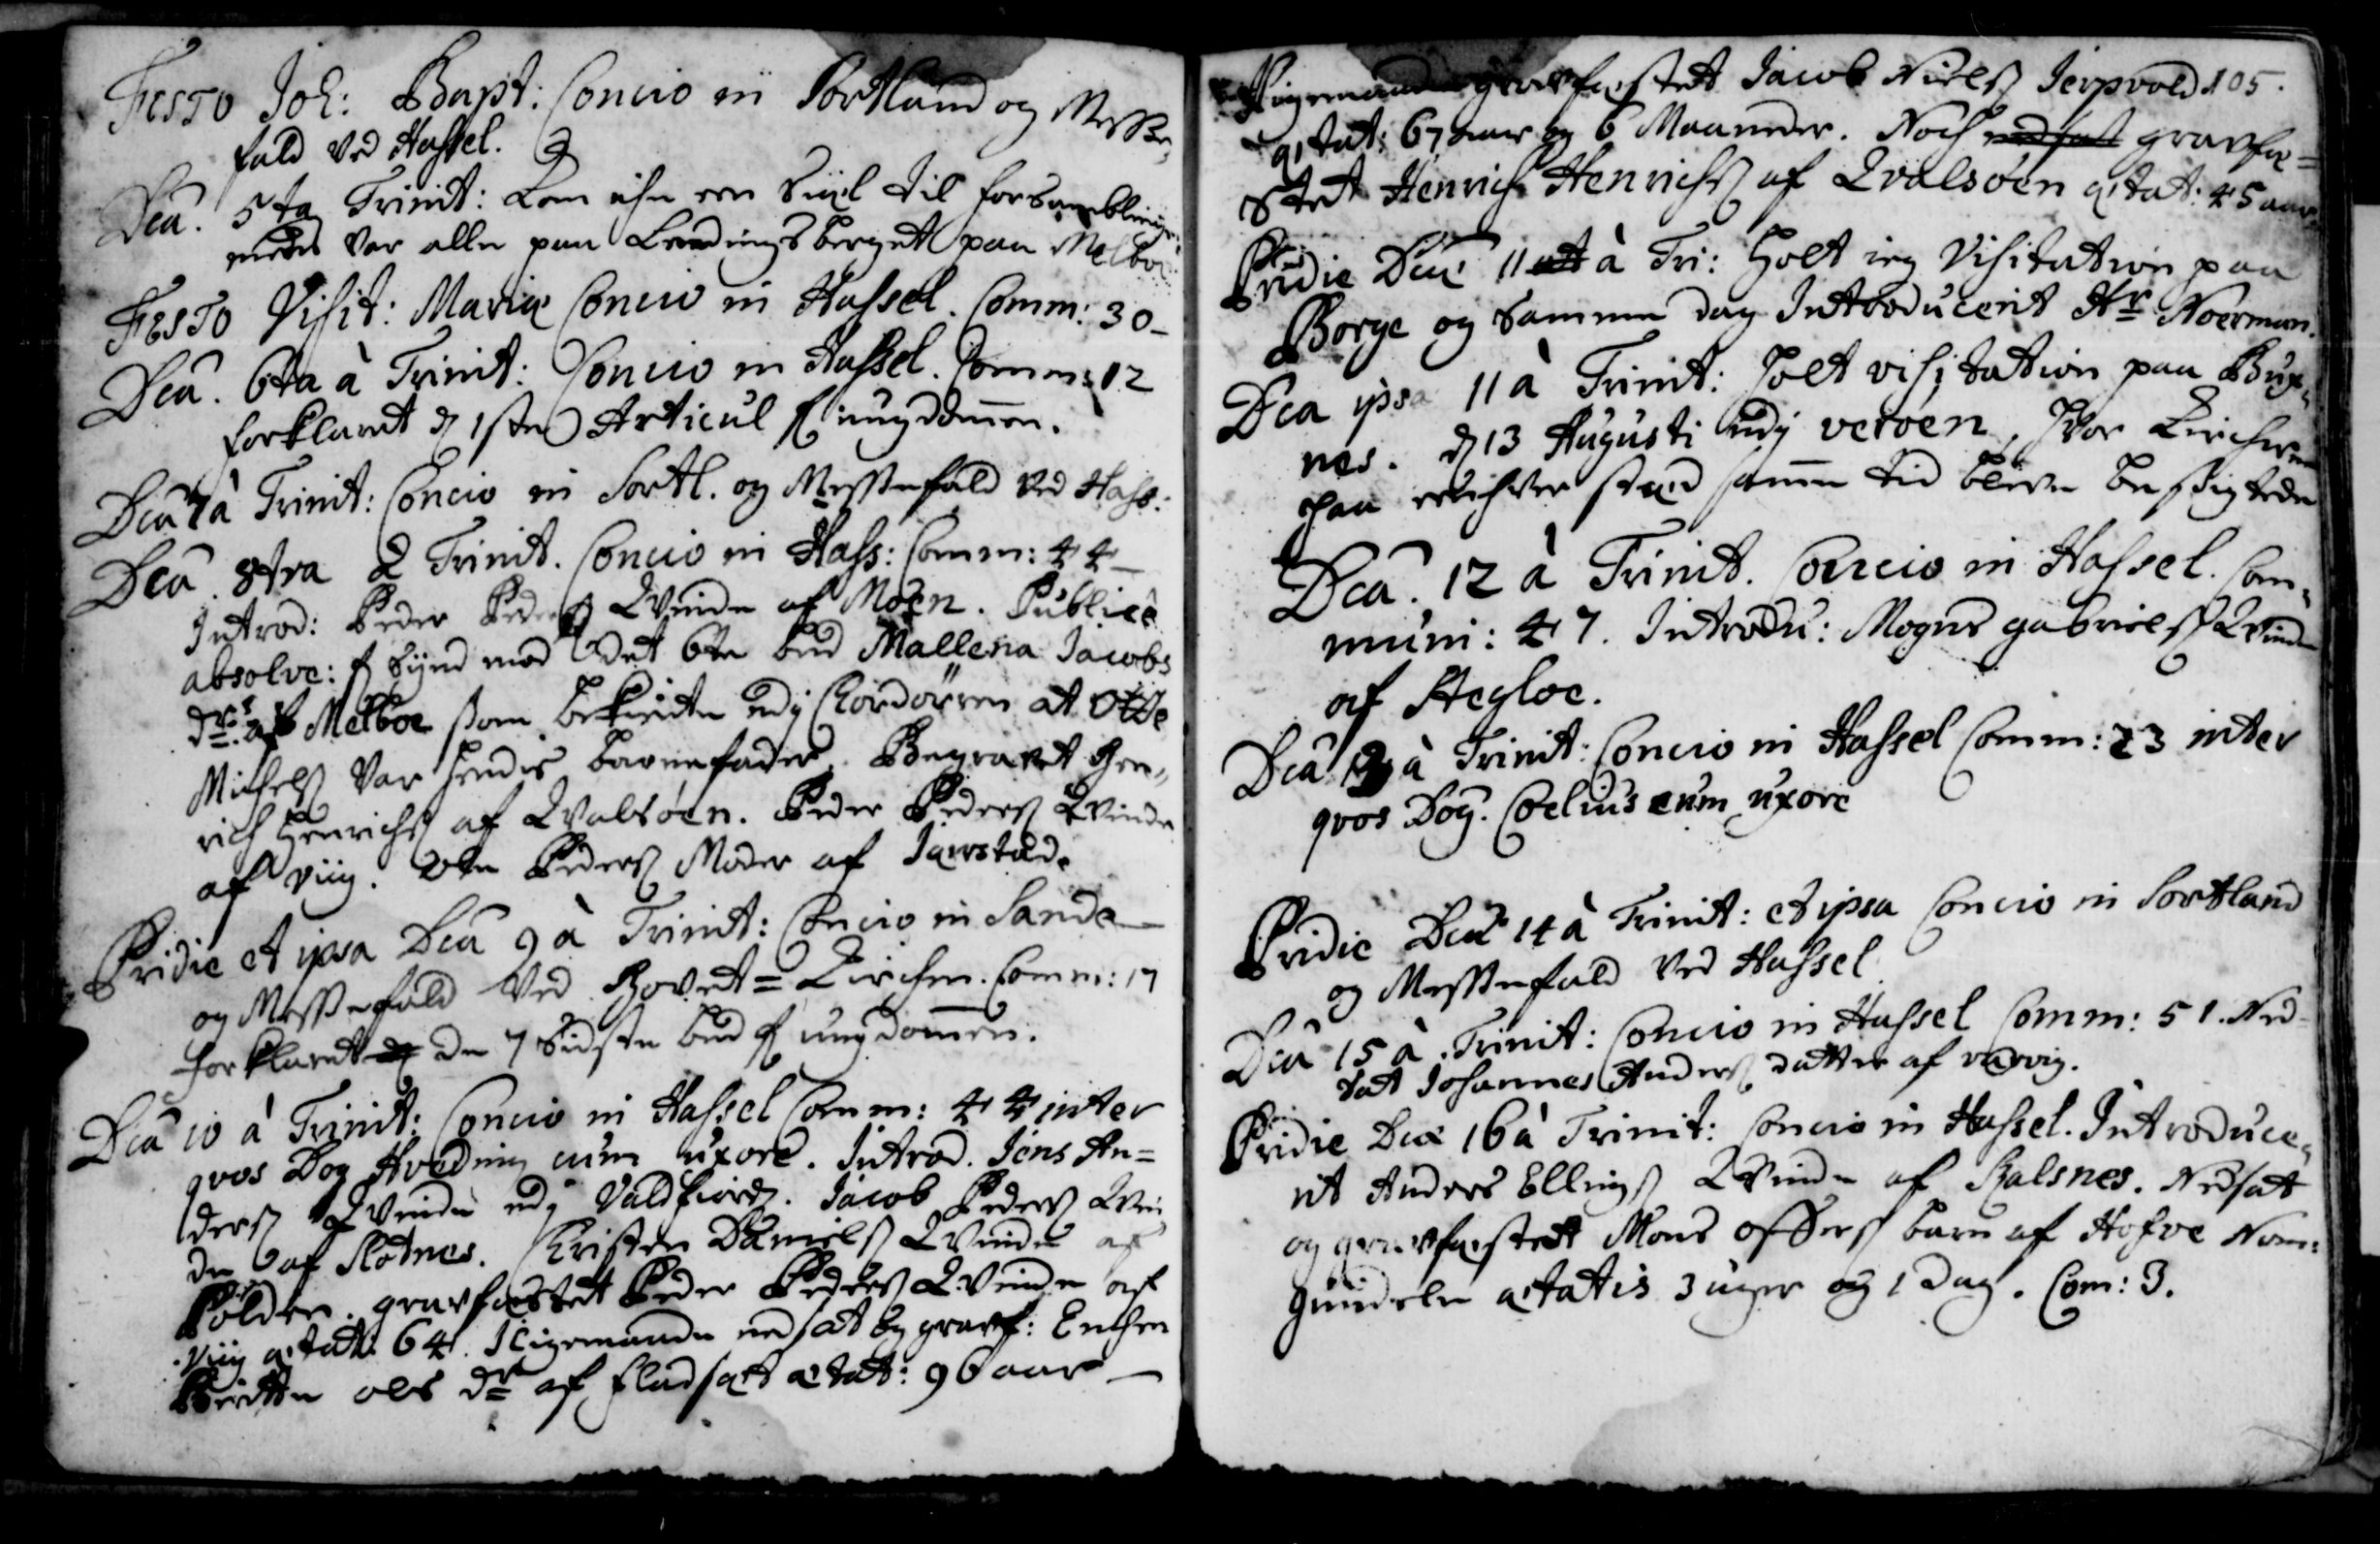 Festo Joh: Bapt: Concio in Sortland og Messe
fald ved Hassel.
Dca. 5ta Trinit: Kom ichn een Siæl til forsamblingen
medens var alle paa Lendingsberget paa Melboe
Festo Visit: Mariæ Concio in Hassel. Comm: 30 -
Dca. 6ta à Trinit: Concio in Hassel. Comm: 12
forklaret d 1sten Articul f ungdomen.
Dca 7 à Trinit: Concio in Sortl. og Messefald ved Hass:
Dca. 8tva à Trinit. Concio in Hass: Comm: 44 -
Introd: Peder Peders Qvinde af Moen. Publicè
absolve: f Synd mod det 6te bud Mallena Jacobs
dr: af Melboe som bekiendte udj Chordörren at Otte
Michels var hendis barnefader. Begravet Hen,
rich Henrichs af Qvalsöen. Peder Peders Qvinde
af viig. Ole Peders Moder af Jaurstad.
Pridie et ipsa Dca 9 à Trinit: Concio in Sande
og Messefald ved Hovet = Kirchen. Comm: 17
forklaret de 7 Sidste bud f ungdomen.
Dca 10 à Trinit: Concio in Hassel Comm: 44 inter
qvos Dog Hveding cum uxore. Introd. Jens An=
ders Qvinde udj Valdfiord. Jacob Peders Qvin
de af Slotnes. Christen Daniels Qvinde af
Polden. gravfæstet Peder Peders Qvinde af
viig ætat: 64. Iligemaade nedsat og gravf: Enchen
Birtte ols dr af fladsæt ætat: 96 aar -
Ligemaade gravfæstet Jacob Niels Jerpvold 105.
ætat: 67 aar og 6 Maaneder. Noch gravfæ=
stet Henrich Henrichs af Qvalsöen ætat: 45 aar
Pridie Dcæ 11 à Tri: Holt ieg Visitation paa
Borge og Samme dag Introducerit Hr Noerman.
Dca ipsa 11 à Trinit: Holt visitation paa Bux,
nes. d 13 Augusti udj veröen, hvor Kircherne
paa enhver sted samme tid bleve besigtede
Dca. 12 à Trinit. Concio in Hassel. Com,
muni: 47. Introdu: Mogns gabriels Qvinde
af Stegloe.
Dca 13 à Trinit: Concio in Hassel Comm: 23 inter
qvos Dog. Coelius cum uxore
Pridie Dcæ 14 à Trinit: et ipsa Concio in Sortland
og Messefald ved Hassel
Dca 15 à Trinit: Concio in Hassel Comm: 51. Ned
sat Johannes Anders datter af varvig.
Pridie Dcæ 16 à Trinit: Concio in Hassel. Introduce,
rit Anders Ellings Qvinde af Kalsnes. Nedsat
og gravfæstet Mons offers barn af Hofve Nom:
Gundele ætatis 3 uger og 1 Dag. Com: 3.